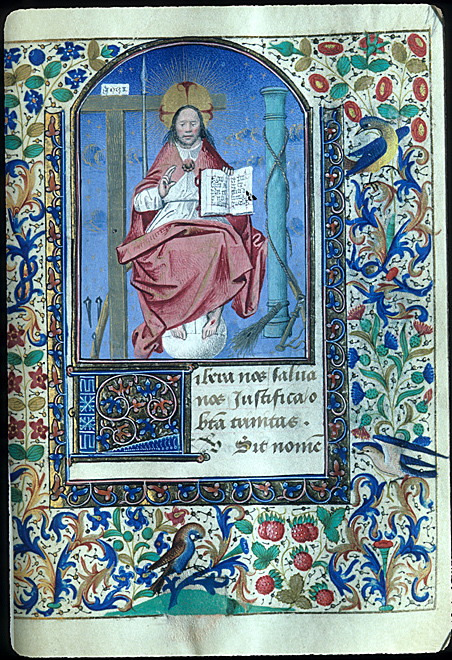 Libera nos salua
nos Justifica o
bt̄a trinitas .
V. Sit nomē